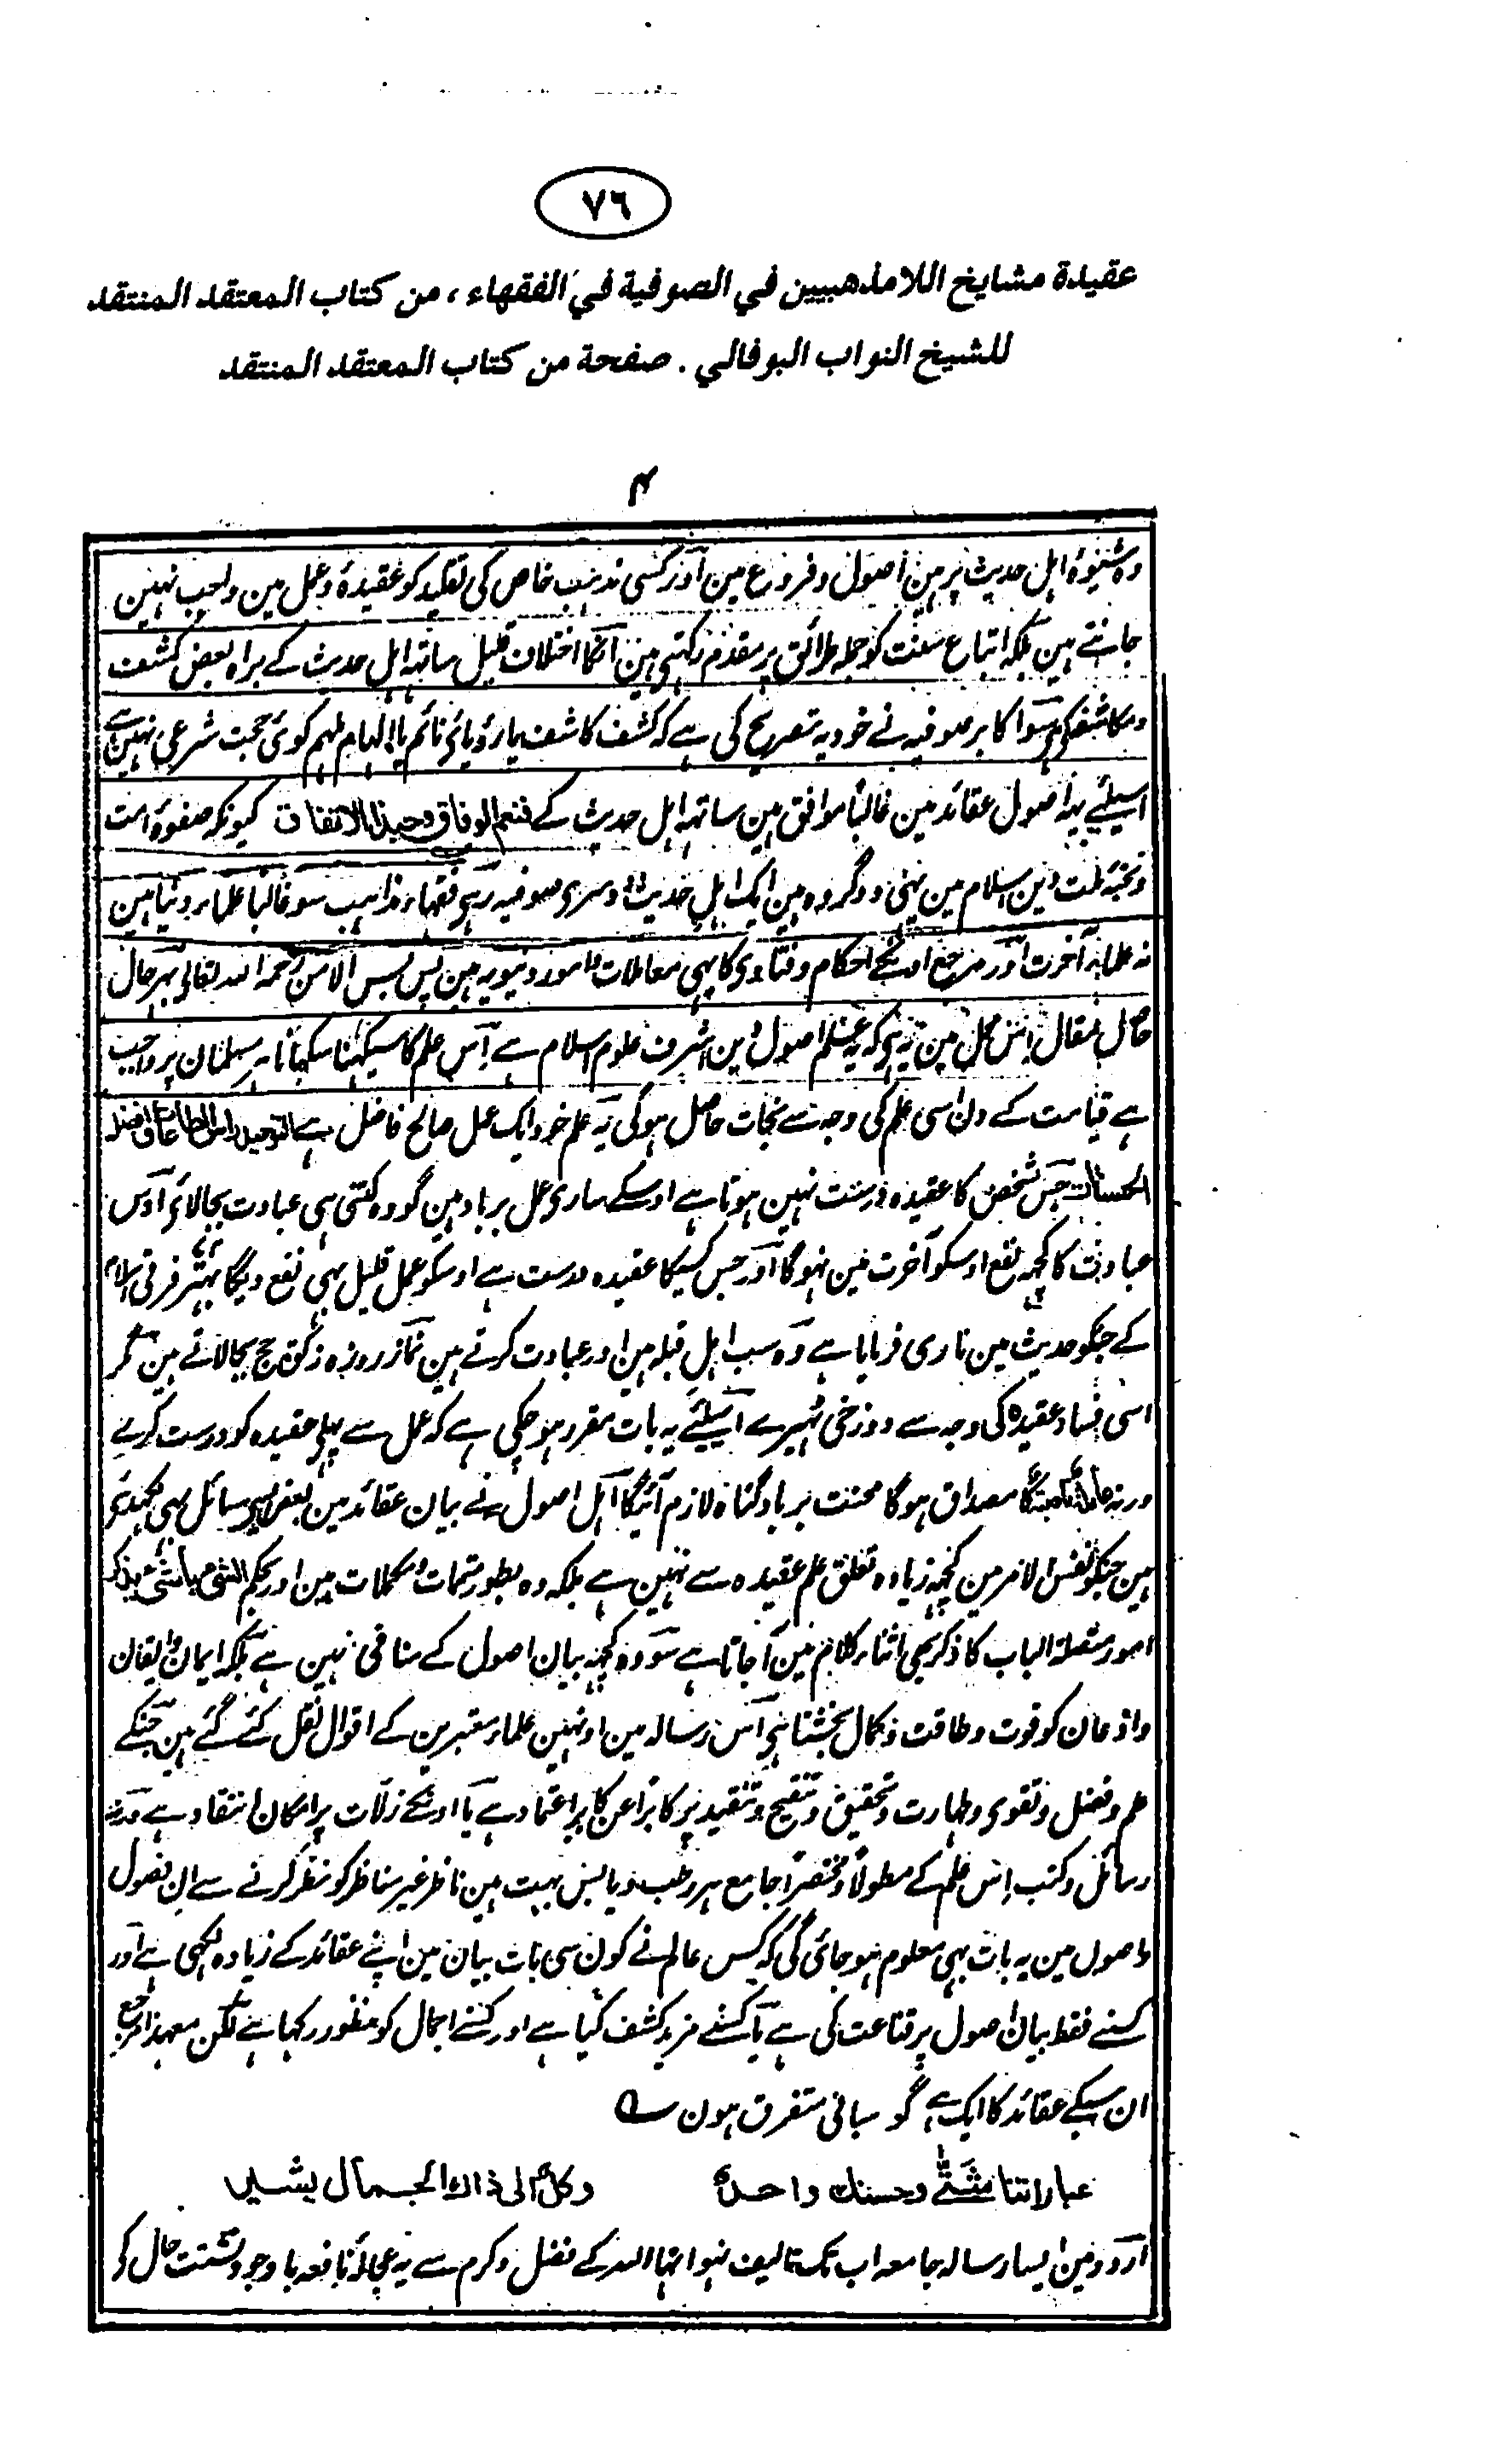 ٧٦
عقيدة مشايخ اللامذهبيين في الصوفية في الفقهاء، من كتاب المعتقد المنتقد
للشيخ النواب البوفالي. صفحة من كتاب المعتقد المنتقد
۴
وہ شیوۂ اہل حدیث پر ہین اصول وفروع مین اور کسی مذہب خاص کی تقلید کو عقیدۂ وعمل مین واجب نہین
جانتے ہین بلکہ اتباع سنت کو جملہ طرائق پر مقدم رکہتی ہین انکا اختلاف قلیل ساتہہ اہل حدیث کے براہ بعض کشف
ومکاشفہ کی ہے سوا کابر صوفیہ نے خود یہ تصریح کی ہے کہ کشف کاشف یا رؤیائ نائم یا الہام ملہم کوئی حجت شرعی نہین ہے
اسیلئے یہہ اصول عقائد مین غالبا موافق ہین ساتہہ اہل حدیث کے فنعم الوفاق وحبذا الاتفاق کیونکہ صفوۂ امت
ونخبۂ ملت دین اسلام مین یہی دو گروہ ہین ایک اہل حدیث دوسری صوفیہ رہی فقہاء مذاہب سو غالبا علماء دنیا ہین
نہ علماء آخرت اور مرجع اونکے احکام وفتاوی کا یہی معاملات وامور دنیویہ ہین پس لبس الا من رحمہ اللہ تعالی بہر حال
حاصل مقال اس محل مین یہ ہی کہ یہ علم اصول دین اشرف علوم اسلام ہے اس علم کا سیکہنا سکہانا ہر مسلمان پر واجب
ہے قیامت کے دن اسی علم کی وجہ سے نجات حاصل ہوگی یہ علم خود ایک عمل صالح فاضل ہے التوحید راس الطاعات وافضل
الحسنات جس شخص کا عقیدہ درست نہین ہوتا ہے اوسکے ساری عمل برباد ہین گو وہ کتنی ہی عبادت بجالائی اوس
عبادت کا کچہہ نفع اوسکو آخرت مین نہوگا اور جس کسیکا عقیدہ درست ہے اوسکو عمل قلیل بہی نفع دیگا بہتر فرقی اسلام
کے جنکو حدیث مین ناری فرمایا ہے وہ سب اہل قبلہ ہین اور عبادت کرتے ہین نماز روزہ زکوۃ حج بجالاتے ہین مگر
اسی فساد عقیدہ کی وجہ سے دوزخی ٹہیرے اسیلئے یہ بات مقرر ہو چکی ہے کہ عمل سے پہلے عقیدہ کو درست کرے
ورنہ عاملۃ ناصبۃ کا مصداق ہوگا محنت برباد گناہ لازم آئیگا اہل اصول نے بیان عقائد مین بعض ایسے مسائل بہی لکہدئے
ہین جنکو نفس الامر مین کچہہ زیادہ تعلق علم عقیدہ سے نہین ہے بلکہ وہ بطور متممات ومکملات ہین اور بحکم الشئ بالشئ یذکر
امور متعلقۃ الباب کا ذکر بہی اثناء کلام مین آجاتا ہے سو وہ کچہہ بیان اصول کے منافی نہین ہے بلکہ ایمان وایقان
واذعان کو قوت وطاقت وکمال بخشتا ہی اس رسالہ مین اونہین علماء معتبرین کے اقوال نقل کئے گئے ہین جنکے
علم وفضل وتقوی وطہارت وتحقیق وتنقیح وتنقید پر کابرا عن کابر اعتماد ہے یا اونکے زلات پر امکان انتقاد ہے ورنہ
رسائل وکتب اس علم کے مطولا ومختصرا جامع ہر رطب ویابس بہت ہین ناظر غیر مناظر کو نظر کرنے سے ان فصول
واصول مین یہ بات بہی معلوم ہو جائی گی کہ کس عالم نے کون سی بات بیان مین اپنے عقائد کے زیادہ لکہی ہے اور
کسنے فقط بیان اصول پر قناعت کی ہے یا کسنے مزید کشف کیا ہے اور کسنے اجمال کو منظور رکہا ہے لکن معہذا مرجع
ان سبکے عقائد کا ایک ہے گو مبانی متفرق ہون ؎
عباراتنا شتی وحسنك واحد وکل الی ذاك الجمال یشیر
اردو مین ایسا رسالہ جامعہ اب تک تالیف نہوا تہا اللہ کے فضل وکرم سے یہ عجالۂ نافعہ باوجود تشتت حال کے